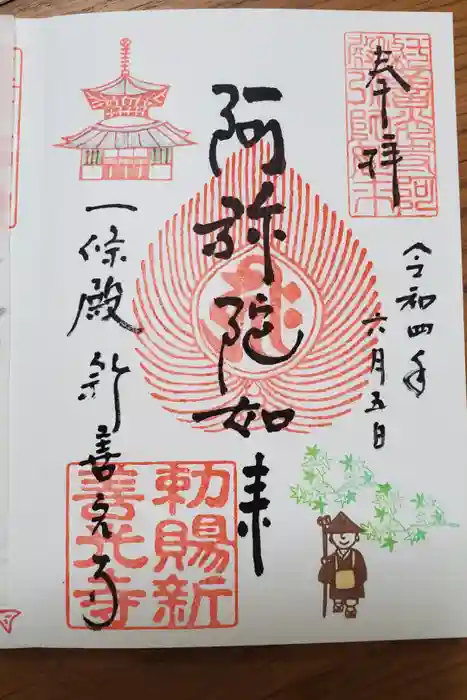 奉拝
令和四年
六月五日
阿弥陀如来
一條殿 新善光寺
勅賜新
善光寺